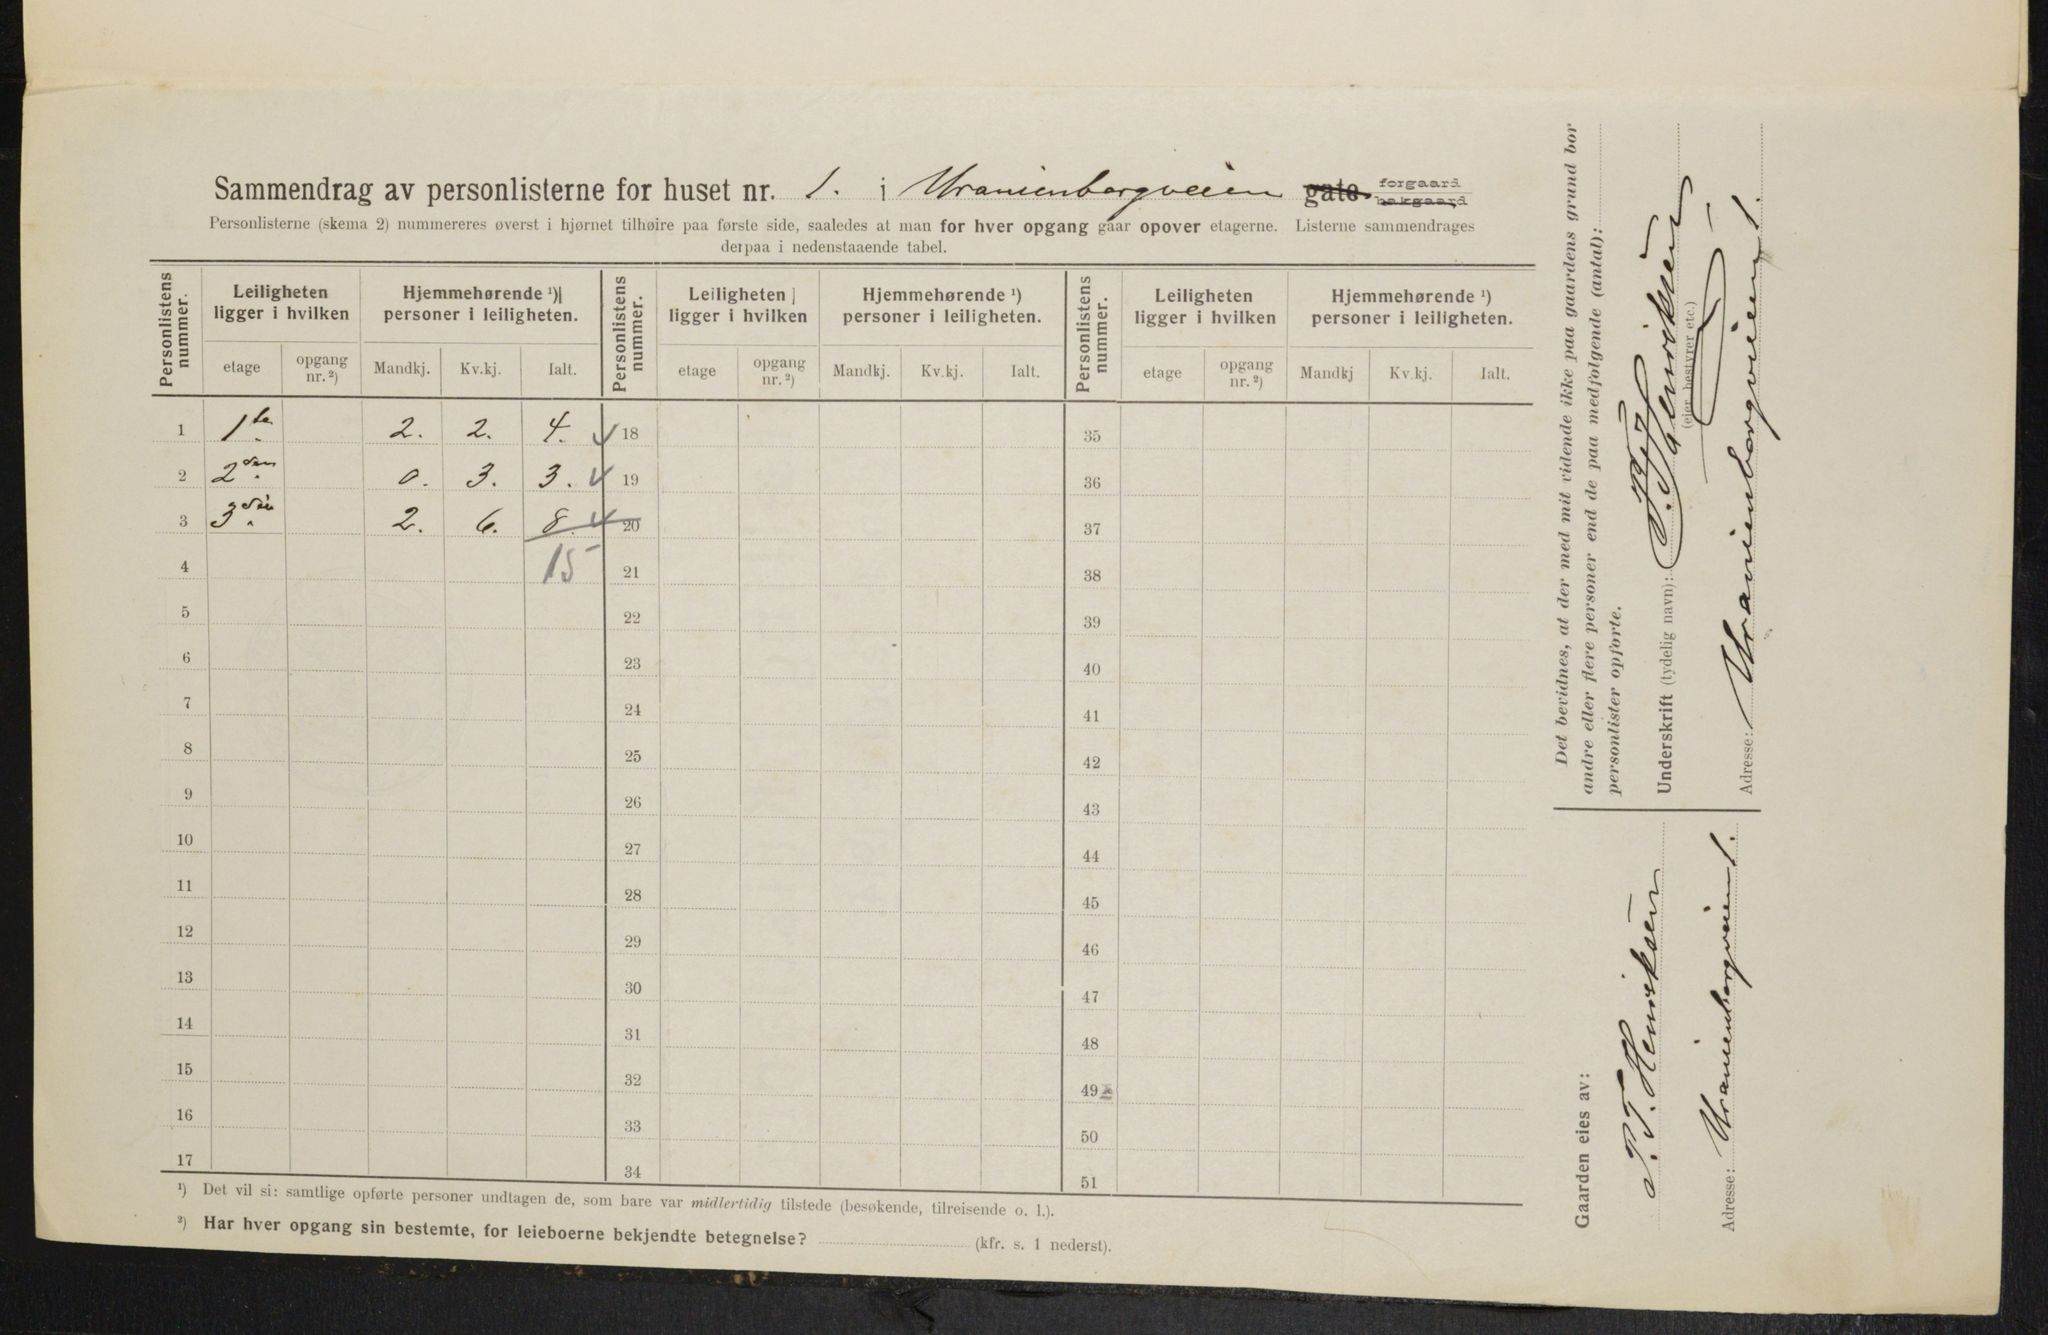 Sammendrag av personlisterne for huset nr. 1. i Uranienborgveien gate forgaard bakgaard
Personlisterne (skema 2) nummereres øverst i hjørnet tilhøire paa første side, saaledes at man for hver opgang gaar opover etagerne. Listerne sammendrages
derpaa i nedenstaaende tabel.
Personlistens nummer. Leiligheten ligger i hvilken Hjemmehørende ¹) personer i leiligheten. Personlistens nummer. Leiligheten ligger i hvilken Hjemmehørende ¹) personer i leiligheten. Personlistens nummer. Leiligheten ligger i hvilken Hjemmehørende ¹) personer i leiligheten.
etage opgang nr. ²) Mandkj. Kv.kj. Ialt. etage opgang nr. ²) Mandkj. Kv.kj. Ialt. etage opgang nr. ²) Mandkj Kv.kj. Ialt.
1 1ste 2. 2. 4. 18 35
2 2den 0. 3. 3. 19 36
3 3die 2. 6. 8. 20 37
4 15 21 38
5 22 39
6 23 40
7 24 41
8 25 42
9 26 43
10 27 44
11 28 45
12 29 46
13 30 47
14 31 48
15 32 49
16 33 50
17 34 51
¹) Det vil si: samtlige opførte personer undtagen de, som bare var midlertidig tilstede (besøkende, tilreisende o. l.).
²) Har hver opgang sin bestemte, for leieboerne bekjendte betegnelse? (kfr. s. 1 nederst).
Det bevidnes, at der med mit vidende ikke paa gaardens grund bor
andre eller flere personer end de paa medfølgende (antal):
personlister opførte.
Underskrift (tydelig navn): T. Henriksen
(eier, bestyrer etc.)
Adresse: Uranienborgveien 1.
Gaarden eies av:
T. T. Henriksen
Adresse: Uranienborgveien 1.